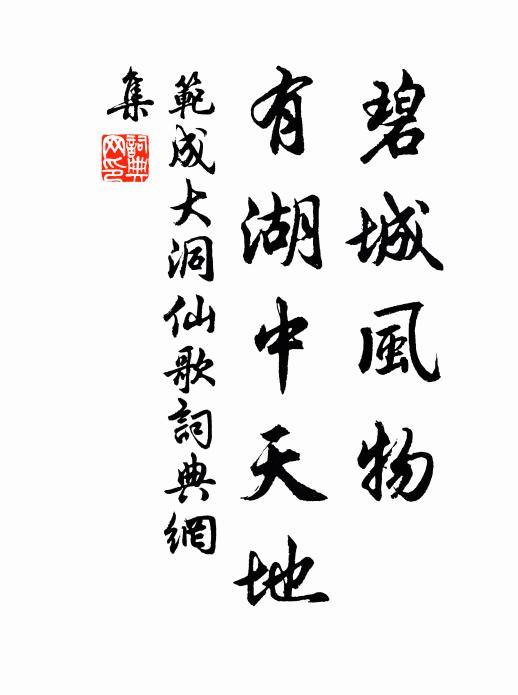 碧城風物
有湖中天地
範成大洞仙歌詞典網
集
詞典網印